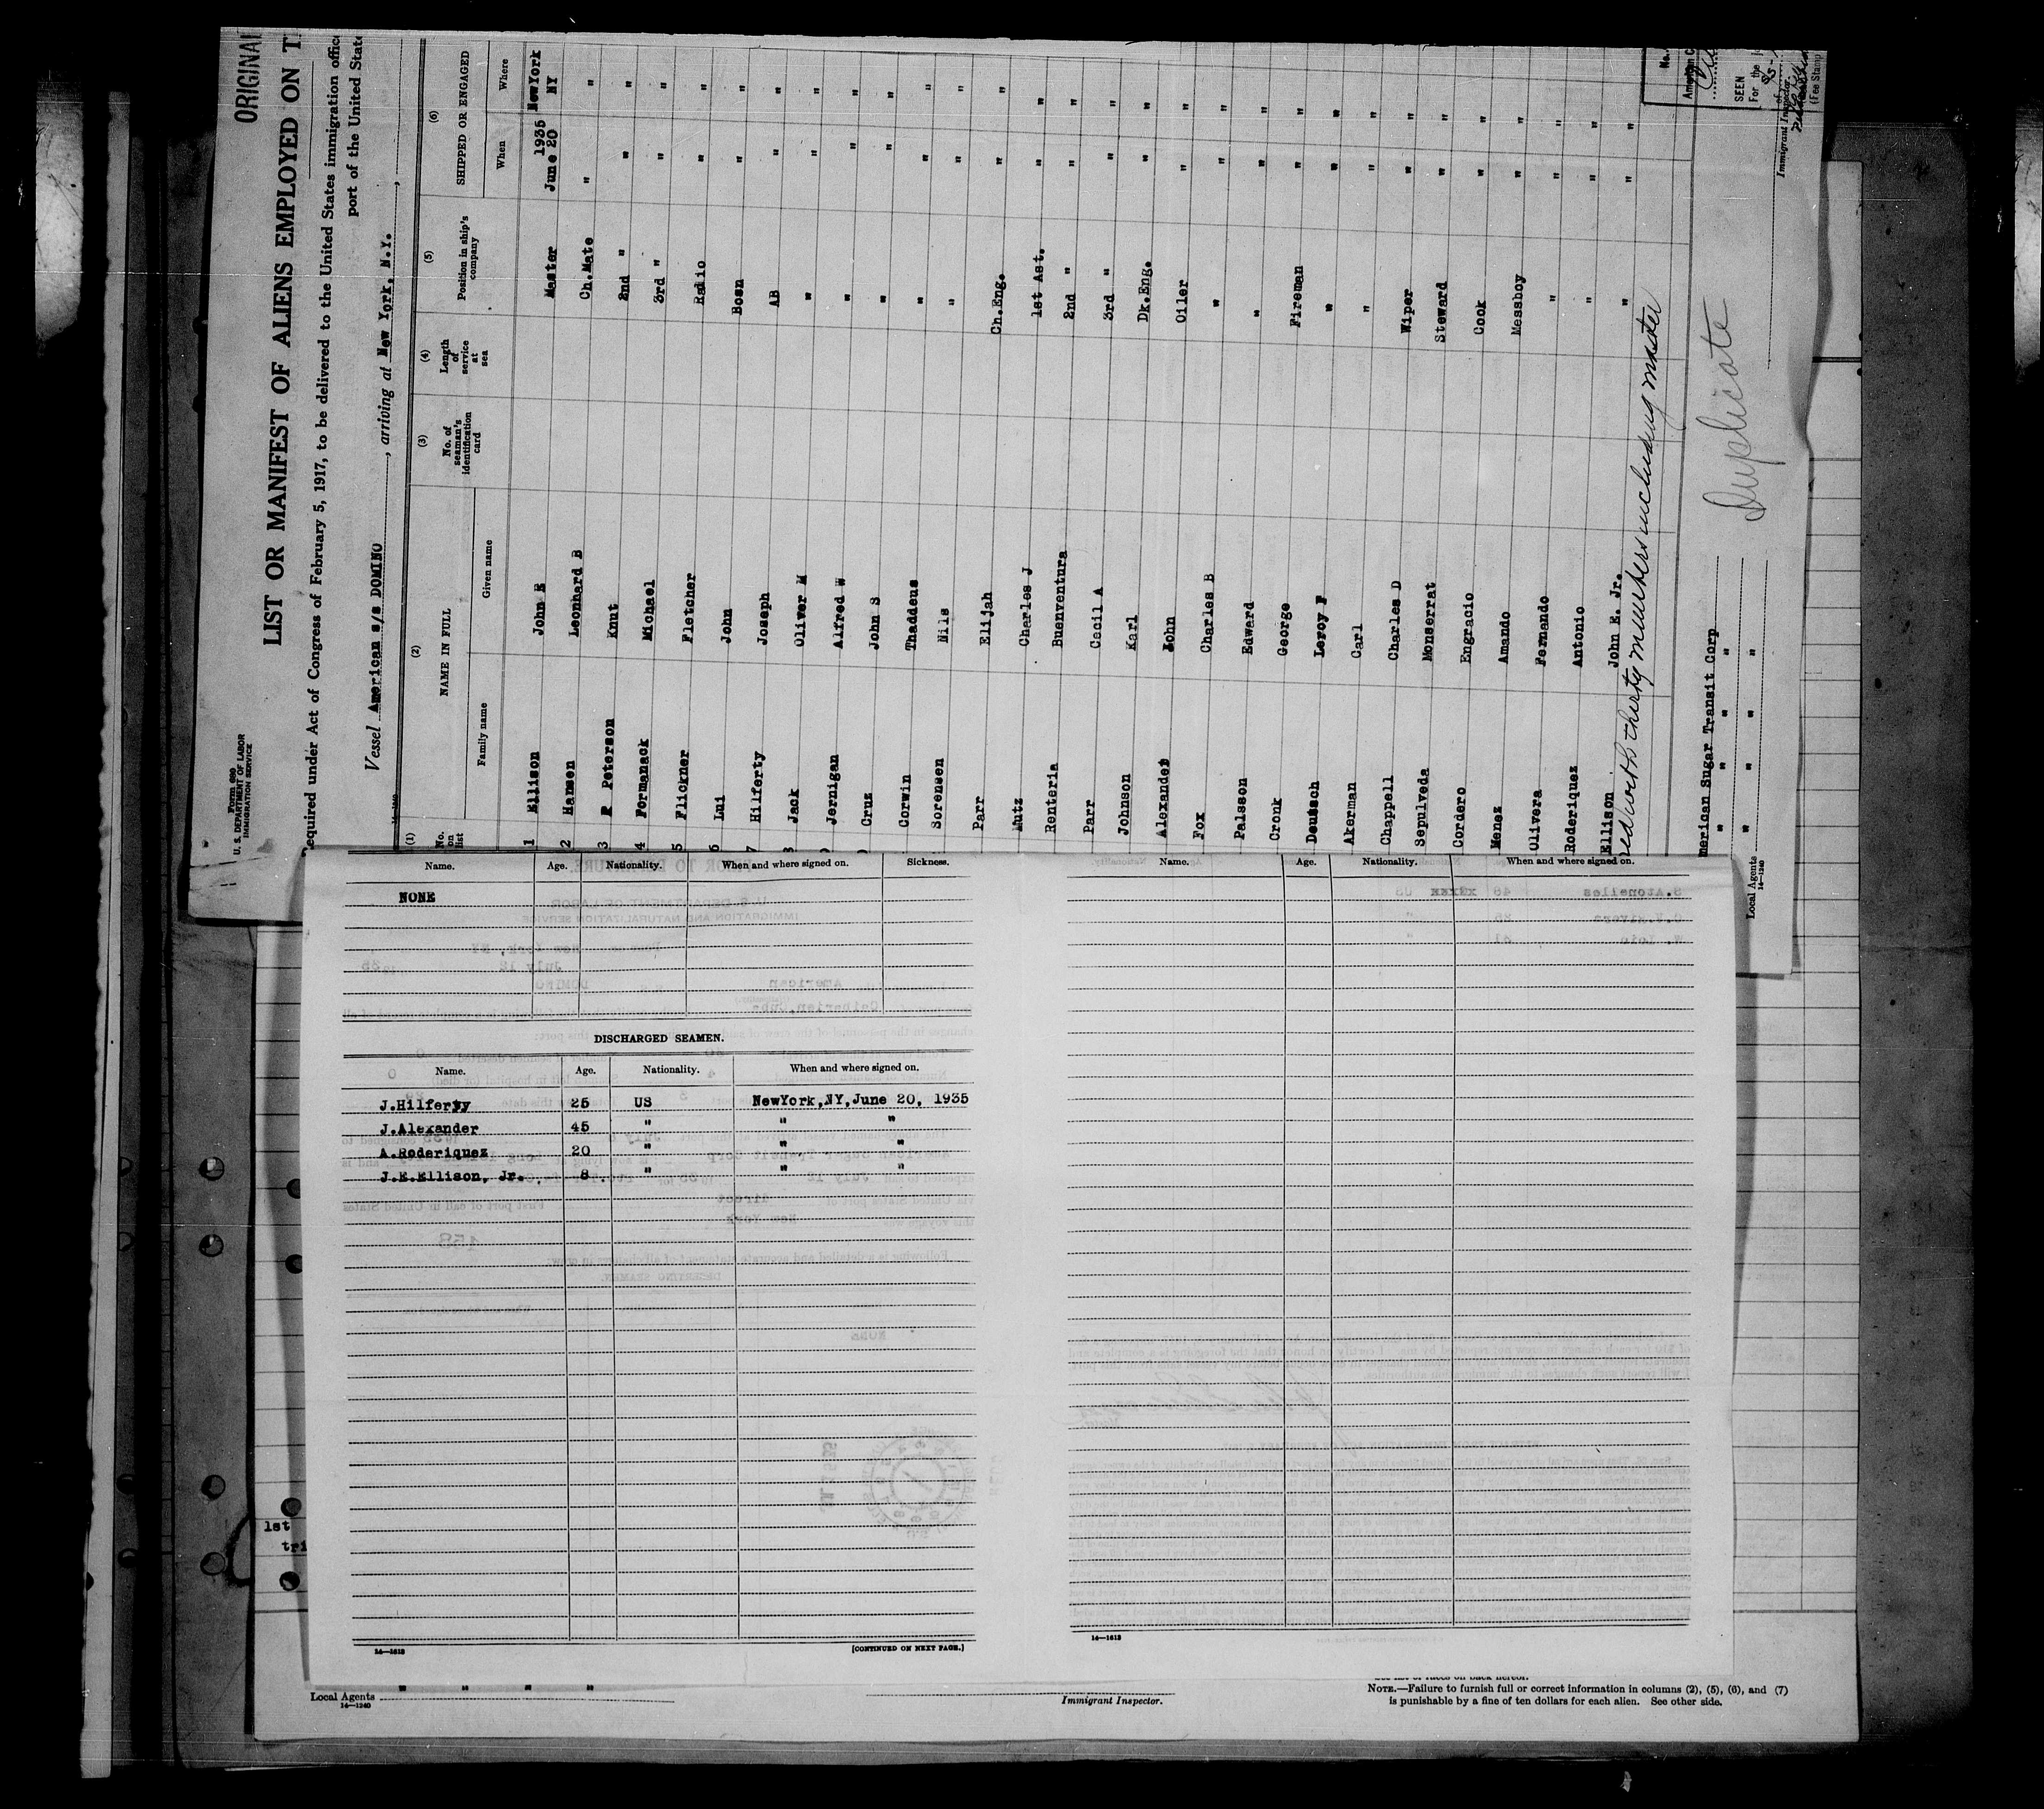 ORIGINAL
Form 680
U. S. DEPARTMENT OF LABOR
IMMIGRATION SERVICE
LIST OR MANIFEST OF ALIENS EMPLOYED ON T
Required under Act of Congress of February 5, 1917, to be delivered to the United States immigration offic
port of the United State
Vessel American s/s DOMINO, arriving at New York, N.Y.,
(1) (2) (3) (4) (5) (6)
No. on list NAME IN FULL No. of seaman's identification card Length of service at sea Position in ship's company SHIPPED OR ENGAGED
Family name Given name When Where
1935 NewYork
1 Ellison John E Master June 20 NY
2 Hansen Leonhard B Ch.Mate " "
3 Peterson Knut 2nd " " "
4 Formanack Michael 3rd " " "
5 Flickner Fletcher Radio " "
6 Lui John Bosn " "
7 Hilferty Joseph AB " "
Jack Oliver M " " "
Jernigan Alfred W " " "
Cruz John S " " "
Corwin Thaddeus " " "
Sorensen Nils " " "
Parr Elijah Ch.Eng. " "
Autz Charles J 1st Ast. " "
Renteria Buenventura 2nd " " "
Parr Cecil A 3rd " " "
Johnson Karl Dk.Eng. " "
Alexander John Oiler " "
Fox Charles B " " "
Palsson Edward " " "
Cronk George Fireman " "
Deutsch Leroy F " " "
Akerman Carl " " "
Chappell Charles D Wiper " "
Sepulveda Monserrat Steward " "
Cordero Engracio Cook " "
Menez Amando Messboy " "
Olivera Fernando " " "
Roderiquez Antonio " " "
Ellison John E. Jr. " " "
ed with thirty members including master
No.
American C
SEEN
For the
(Fee Stamp
Immigrant Inspector.
merican Sugar Transit Corp
" " " "
Local Agents " " " "
14—1240
Duplicate
Name. Age. Nationality. When and where signed on. Sickness.
NONE
DISCHARGED SEAMEN.
Name. Age. Nationality. When and where signed on.
J.Hilferty 25 US NewYork,NY,June 20, 1935
J.Alexander 45 " " "
A.Roderiquez 20 " " "
J.E.Ellison, Jr. 8 " " "
14—1613 [CONTINUED ON NEXT PAGE.]
Name. Age. Nationality. When and where signed on.
14—1613
1st
tri
" " " "
Local Agents
14—1240
Immigrant Inspector.
See list of races on back hereof.
NOTE.—Failure to furnish full or correct information in columns (2), (5), (6), and (7)
is punishable by a fine of ten dollars for each alien. See other side.